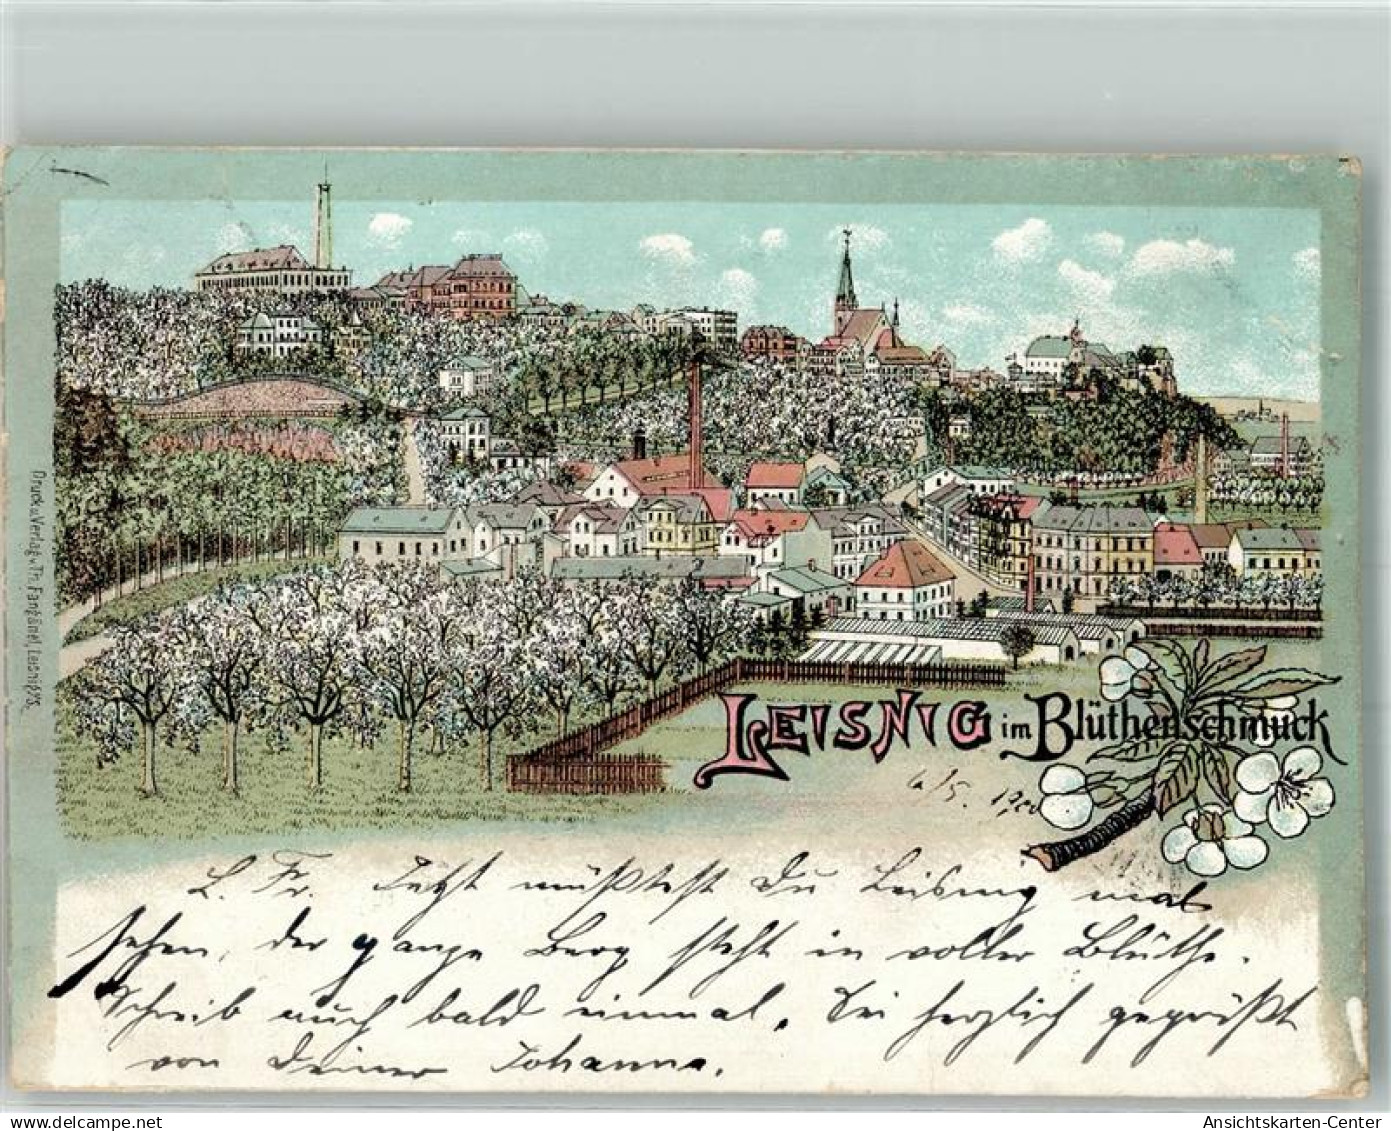 LEISNIG im Blüthenschmuck
4/5. 1900
L. Fr. Jetzt müßtest Du Leisnig mal
sehen, der ganze Berg steht in voller Blüthe.
Schreib auch bald einmal. Sei herzlich gegrüßt
von Deiner Johanna.
Druck u. Verlag v. Th. Fangänel, Leisnig i/S.
delcampe.net
Ansichtskarten-Center